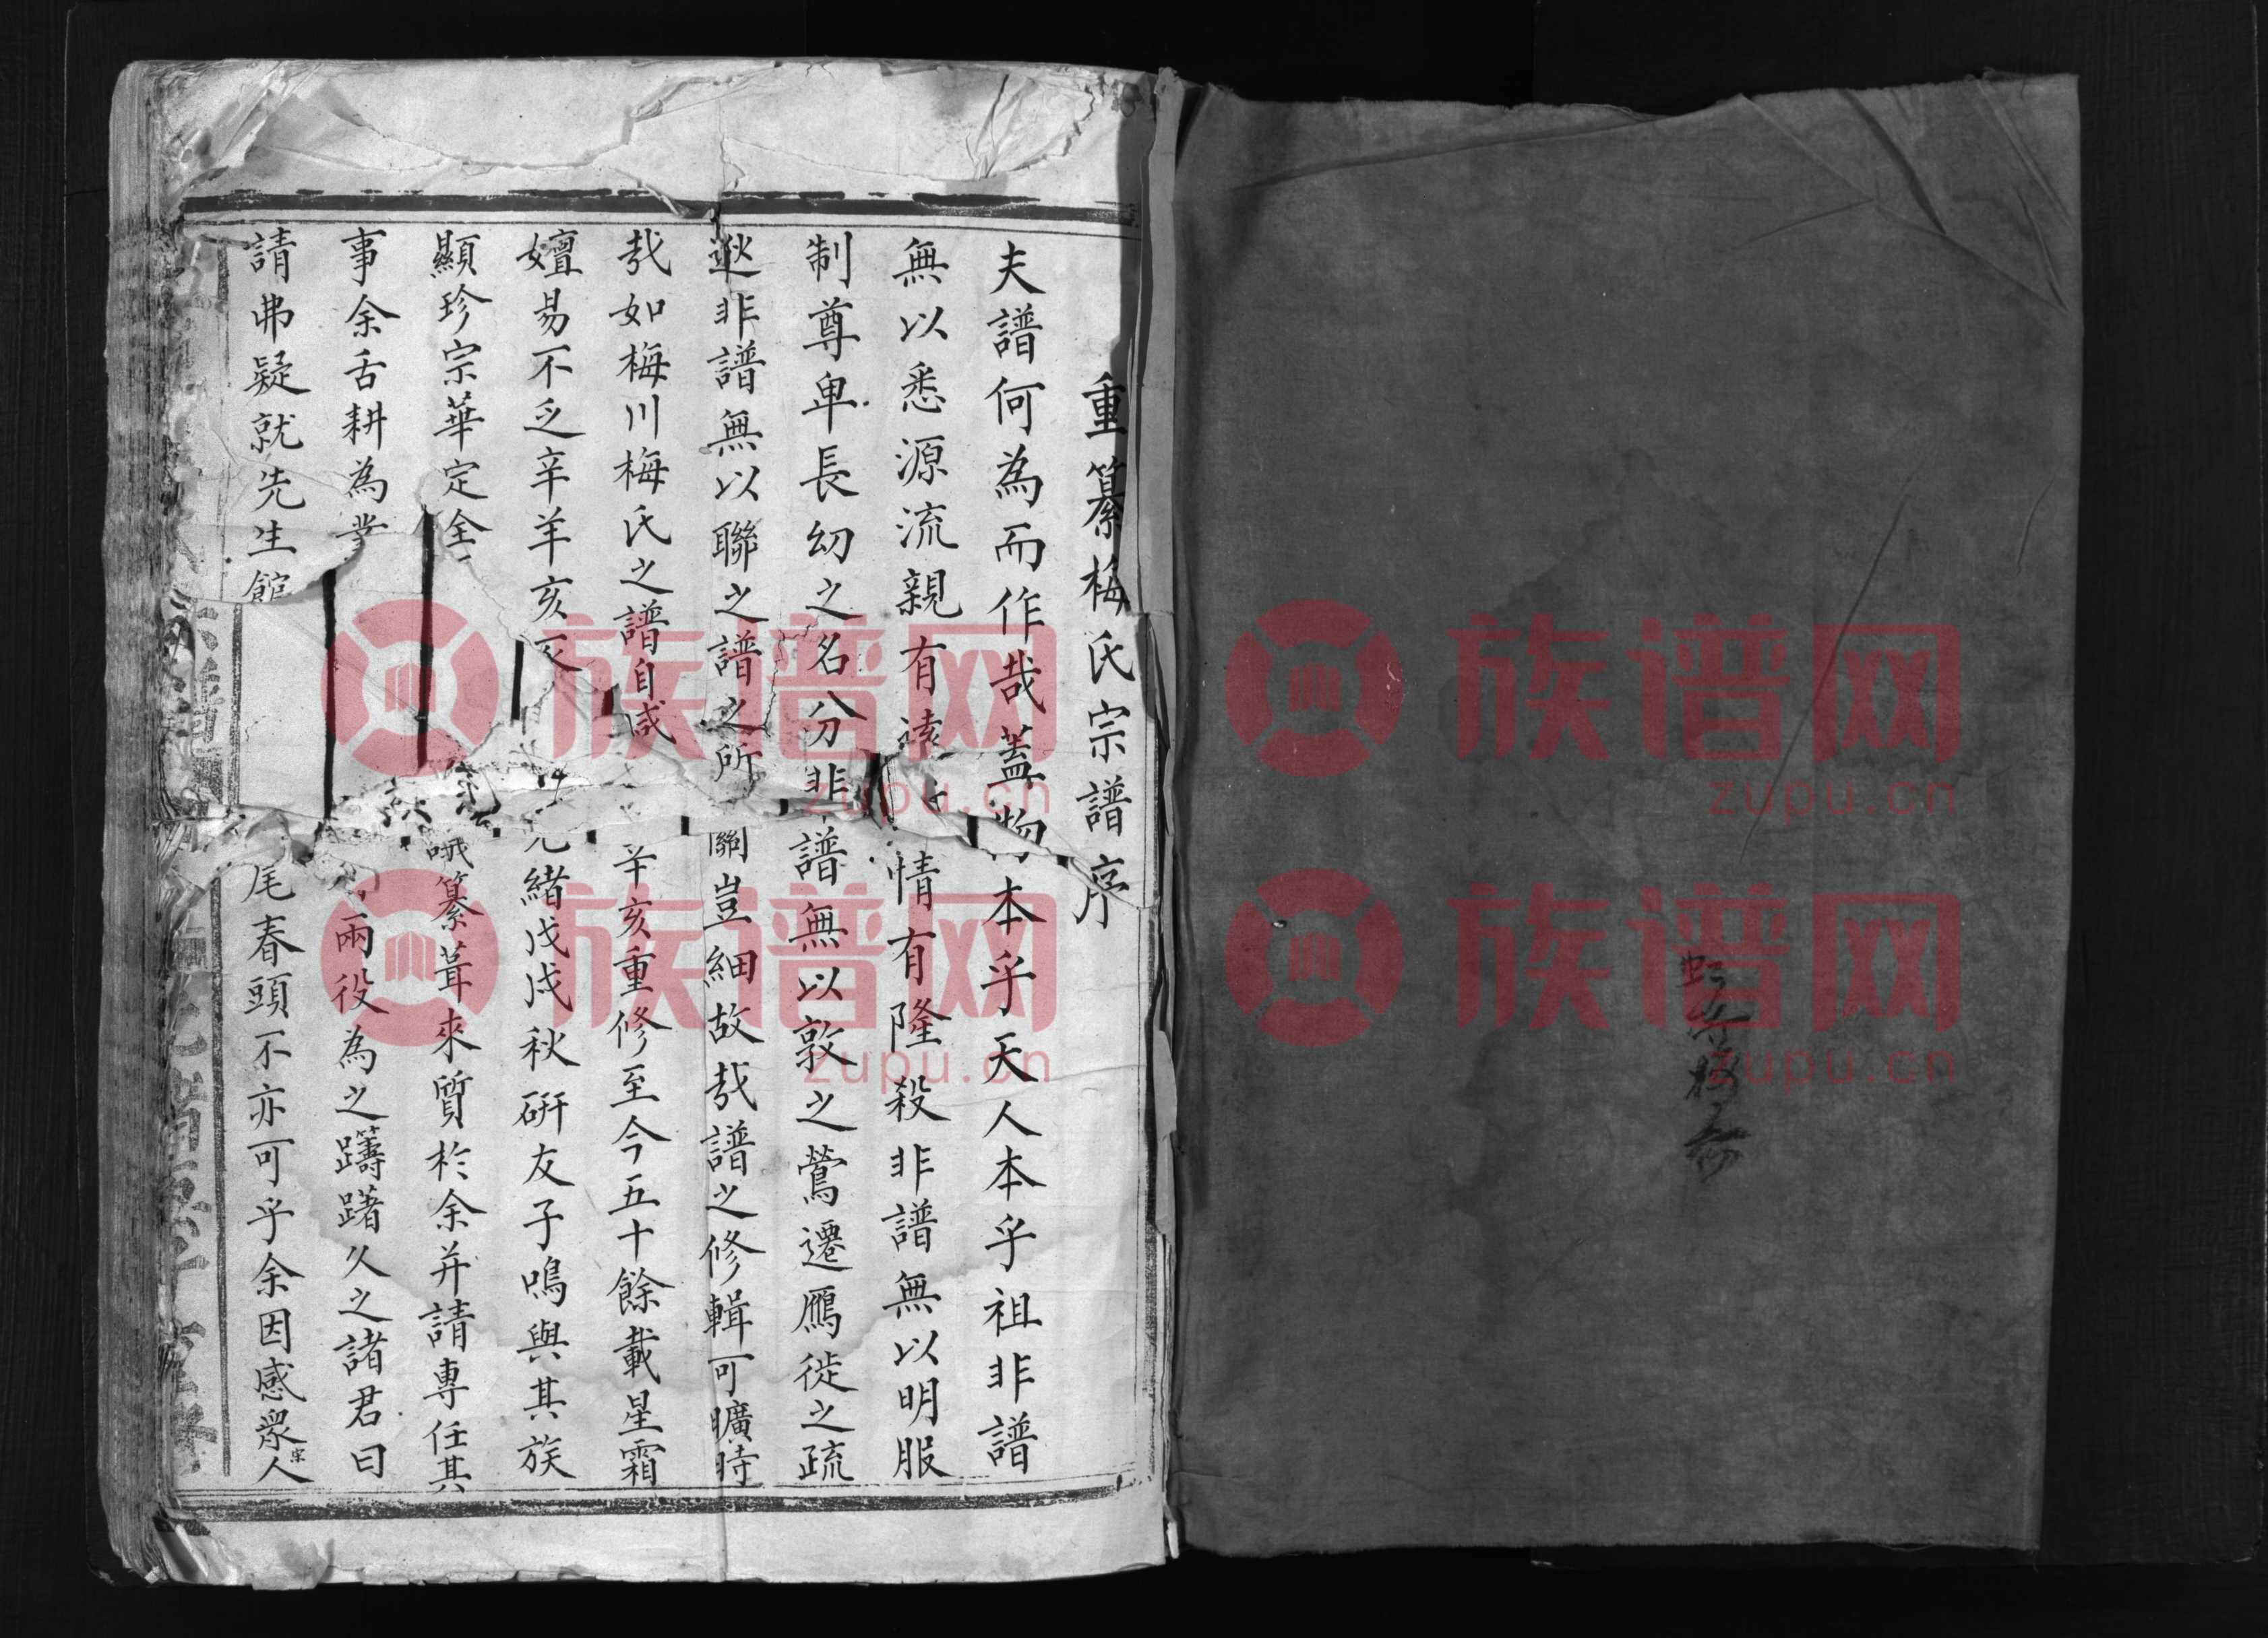 重纂梅氏宗譜序
夫譜何為而作哉蓋物本乎天人本乎祖非譜
無以悉源流親有遠情有隆殺非譜無以明服
制尊卑長幼之名分非譜無以敦之鶯遷鴈徙之疏
逖非譜無以聯之譜之所關豈細故哉譜之修輯可曠時
哉如梅川梅氏之譜自咸辛亥重修至今五十餘載星霜
嬗易不乏辛羊亥豕光緒戊戌秋硏友子鳴與其族
顯珍宗華定全纂葺來質於余并請專任其
事余舌耕為業兩役為之躊躇久之諸君曰
請弗疑就先生館尾春頭不亦可乎余因感衆宗人
族谱网
zupu.cn
族谱网
zupu.cn
族谱网
zupu.cn
族谱网
zupu.cn